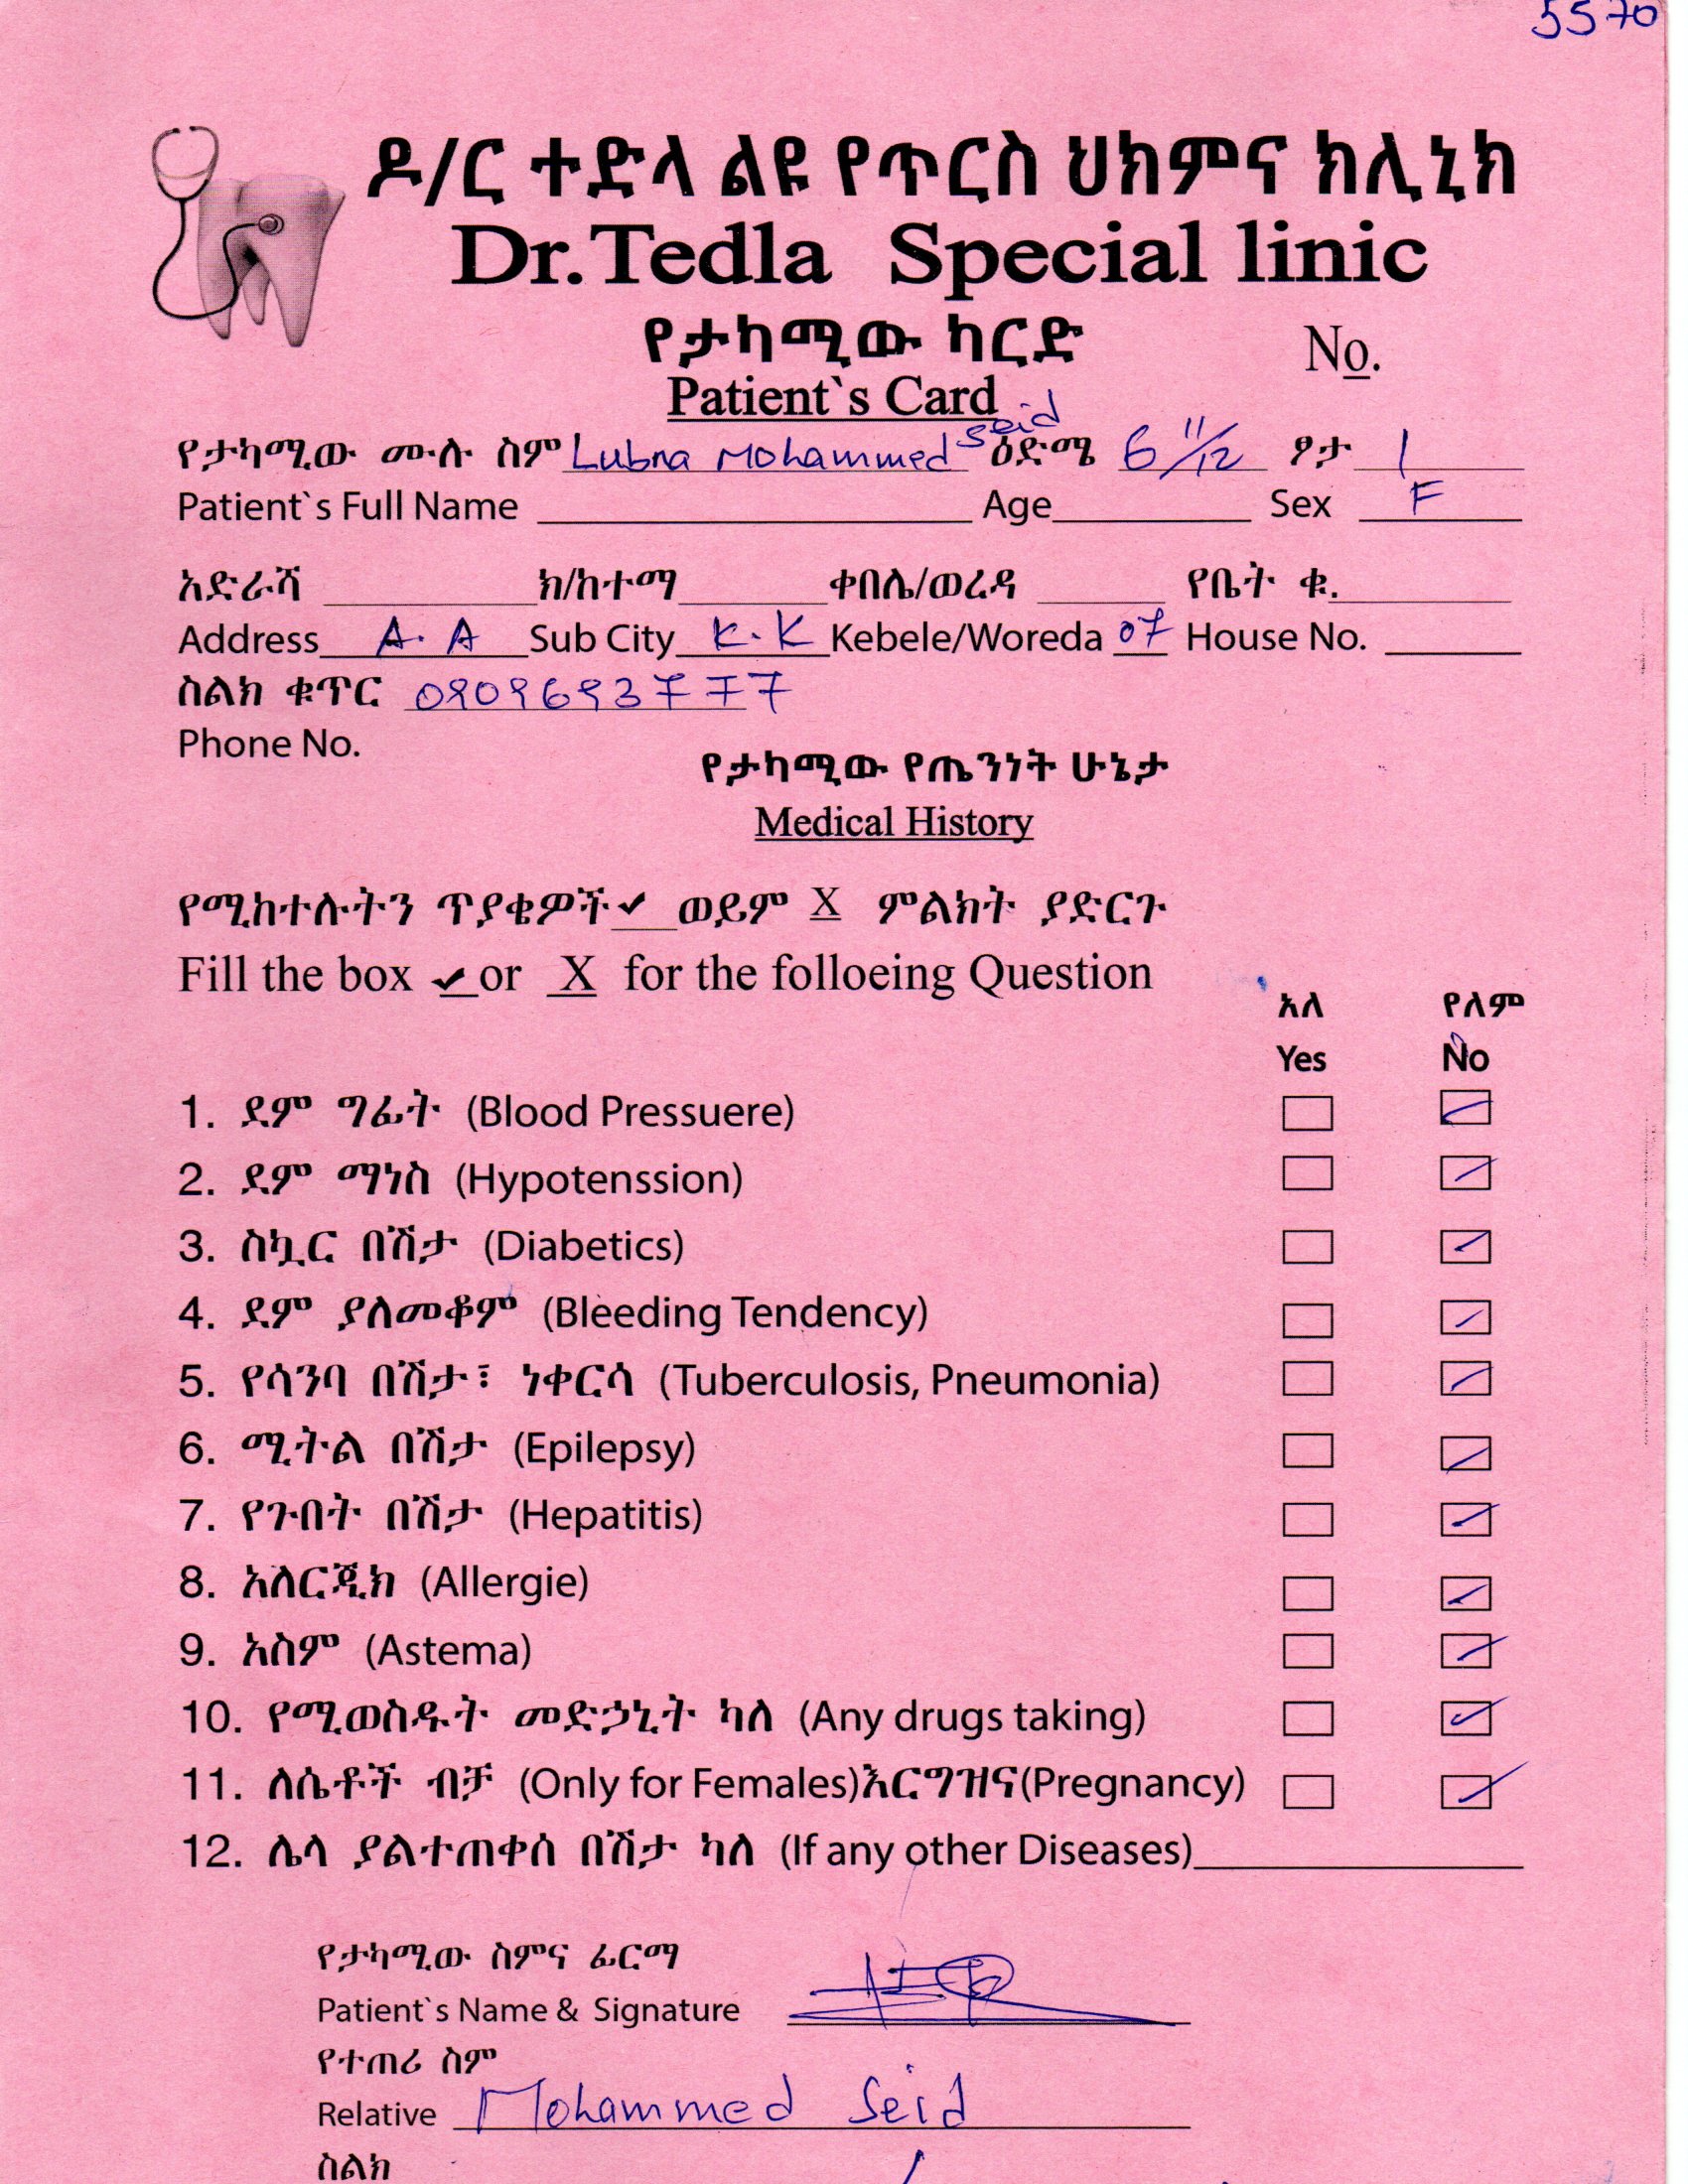 5570
ዶ/ር ተድላ ልዩ የጥርስ ህክምና ክሊኒክ
Dr.Tedla Special linic
የታካሚው ካርድ
No.
Patient`s Card
የታካሚው ሙሉ ስም Lubna Mohammed Seid ዕድሜ 6 11/12 ፆታ
Patient`s Full Name Age Sex F
አድራሻ ክ/ከተማ ቀበሌ/ወረዳ የቤት ቁ.
Address A.A Sub City K.K Kebele/Woreda 07 House No.
ስልክ ቁጥር 0909693777
Phone No.
የታካሚው የጤንነት ሁኔታ
Medical History
የሚከተሉትን ጥያቄዎች ✔ ወይም X ምልክት ያድርጉ
Fill the box ✔ or X for the folloeing Question
አለ የለም
Yes No
1. ደም ግፊት (Blood Pressuere)
2. ደም ማነስ (Hypotenssion)
3. ስኳር በሽታ (Diabetics)
4. ደም ያለመቆም (Bleeding Tendency)
5. የሳንባ በሽታ፣ ነቀርሳ (Tuberculosis, Pneumonia)
6. ሚትል በሽታ (Epilepsy)
7. የጉበት በሽታ (Hepatitis)
8. አለርጂክ (Allergie)
9. አስም (Astema)
10. የሚወስዱት መድኃኒት ካለ (Any drugs taking)
11. ለሴቶች ብቻ (Only for Females)እርግዝና(Pregnancy)
12. ሌላ ያልተጠቀሰ በሽታ ካለ (If any other Diseases)
የታካሚው ስምና ፊርማ
Patient`s Name & Signature
የተጠሪ ስም
Relative Mohammed Seid
ስልክ